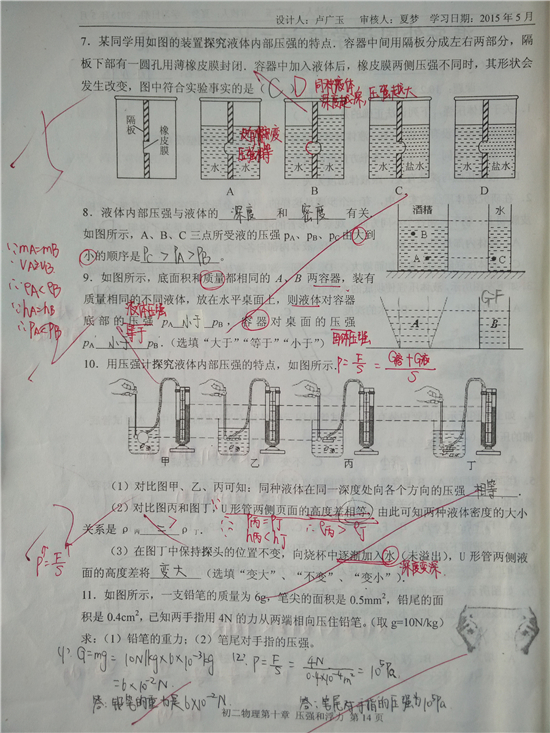 设计人：卢广玉 审核人：夏梦 学习日期：2015 年 5 月
7．某同学用如图的装置探究液体内部压强的特点．容器中间用隔板分成左右两部分，隔
板下部有一圆孔用薄橡皮膜封闭．容器中加入液体后，橡皮膜两侧压强不同时，其形状会
发生改变，图中符合实验事实的是（C）D
深度越深，压强越大
隔板 橡皮膜 水 水 水 水 水 盐水 水 盐水
压强相等
A B C D
8．液体内部压强与液体的 深度 和 密度 有关．
如图所示，A、B、C 三点所受液的压强 pA、pB、pC由大到
小的顺序是 PC＞PA＞PB ．
酒精 水
B A C
∵mA=mB
9．如图所示，底面积和质量都相同的 A、B 两容器，装有
质量相同的不同液体，放在水平桌面上，则液体对容器
底部的压强 pA 小于 pB，容器对桌面的压强
pA 小于 pB．（选填“大于”“等于”“小于”）
液体压强
等于
固体压强
G=F
A B
∴ρA＜ρB
∵hA=hB
∴PA＜PB
10．用压强计探究液体内部压强的特点，如图所示．
甲 乙 丙 丁
（1）对比图甲、乙、丙可知：同种液体在同一深度处向各个方向的压强 相等 ．
（2）对比图丙和图丁：U 形管两侧页面的高度差相等，由此可知两种液体密度的大小
关系是 ρ丙 ρ丁．
∵P丙=P丁
h丙＜h丁
∴ρ丙＞ρ丁
（3）在图丁中保持探头的位置不变，向烧杯中逐渐加入水（未溢出），U 形管两侧液
面的高度差将 变大 （选填“变大”、“不变”、“变小”）．
深度变深
11．如图所示，一支铅笔的质量为 6g，笔尖的面积是 0.5mm²，铅尾的面
积是 0.4cm²，已知两手指用 4N 的力从两端相向压住铅笔．（取 g=10N/kg）
求：（1）铅笔的重力；（2）笔尾对手指的压强．
(1) G=mg = 10N/kg×6×10⁻³kg
=6×10⁻²N
答：铅笔的重力是6×10⁻²N
(2) P=F/S = 4N/0.4×10⁻⁴m² =10⁵Pa
答：笔尾对手指的压强为10⁵Pa
初二物理第十章 压强和浮力 第 14 页